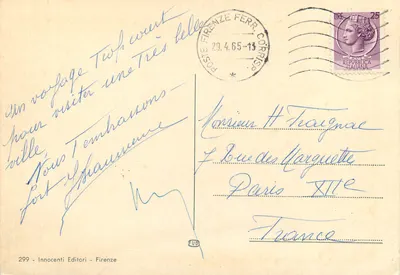 un voyage trop court
pour visiter une très belle
ville.
Nous t'embrassons
fort
POSTE FIRENZE FERR. CORRISP.
29.4.65-13
25
Monsieur H Traignac
7 Rue des Marguettes
Paris XIIe
France
299 - Innocenti Editori - Firenze